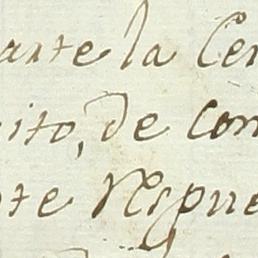 ante la Cer
ito, de con
te respue